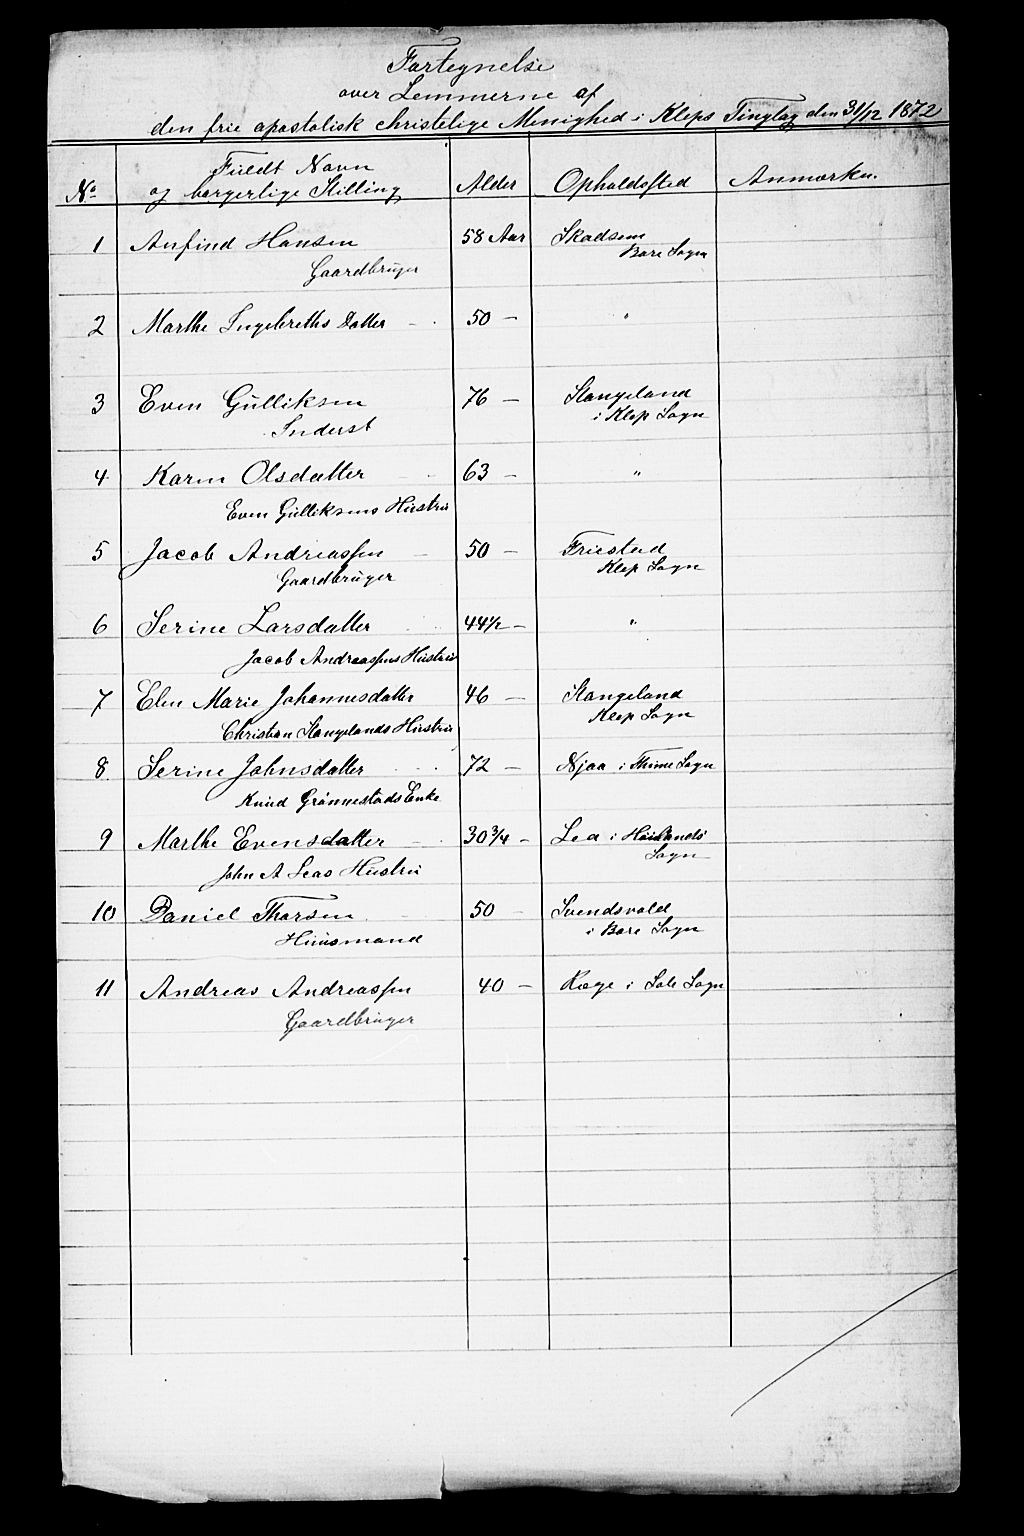 Fortegnelse
over Lemmerne af
den frie apostolisk christelige Menighed i Kleps Tinglag den 31/12 1872
No
Fuldt Navn
og borgerlige Stilling
Alder
Opholdssted
Anmærkn.
1 Anfind Hansen 58 Aar Skadsem
Gaardbruger Bore Sogn
2 Marthe Ingebreths Datter - 50 - "
3 Even Gulliksen 76 - Stangeland
Inderst i Klep Sogn
4 Karen Olsdatter - 63 - "
Even Gulliksens Hustru
5 Jacob Andreassen - 50 - Friestad
Gaardbruger Klep Sogn
6 Serine Larsdatter 44 1/2 - "
Jacob Andreassens Hustru
7 Elen Marie Johannesdatter 46 - Stangeland
Christian Stangelands Hustru Klep Sogn
8 Serine Johnsdatter 72 - Njaa i Thime Sogn
Knud Grønnestads Enke
9 Marthe Evensdatter - 30 3/4 - Lea i Høilands
John A Leas Hustru Sogn
10 Daniel Thorsen - 50 - Svendsvold
Huusmand i Bore Sogn
11 Andreas Andreassen 40 - Ræge i Sole Sogn
Gaardbruger